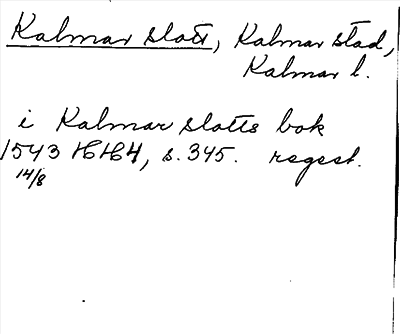 Kalmar slott, Kalmar stad,
Kalmar l.
i Kalmar slotts bok
1543 HH4, s. 345. regest.
14/8